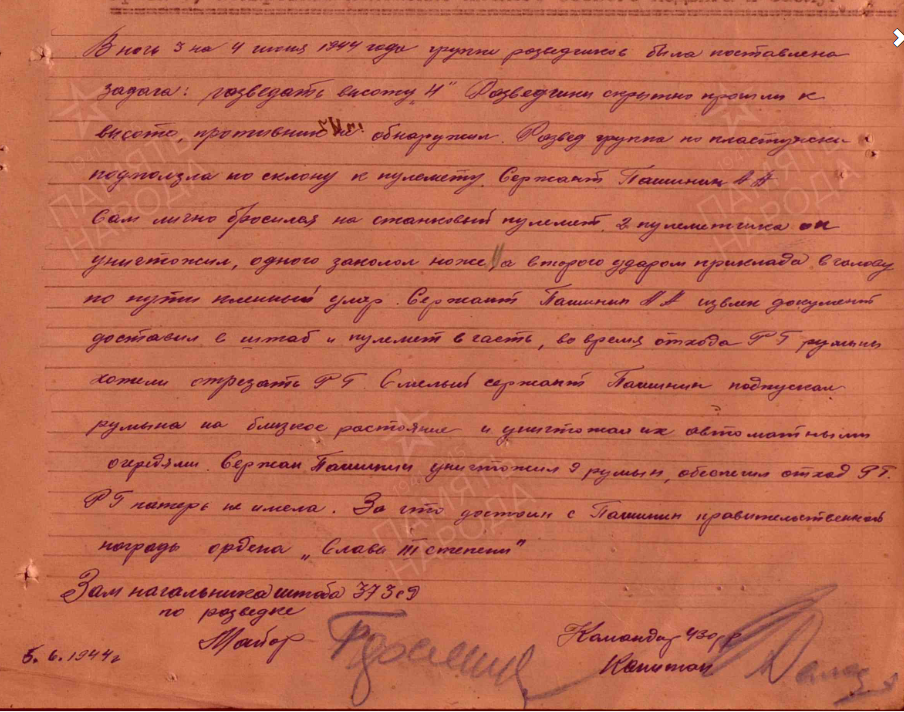 В ночь 3 на 4 июня 1944 года группе разведчиков была поставлена
задача: разведать высоту "4" Разведчики скрытно прошли к
высоте, противник их не обнаружил. Развед группа по пластунски
подползла по склону к пулемету. Сержант Пашинин А А
Сам лично бросился на станковый пулемет. 2 пулеметчика он
уничтожил, одного заколол ножем, а второго ударом приклада в голову
по пути пленный умер. Сержант Пашинин А А извлек документ
доставил в штаб и пулемет в часть, во время отхода РГ румыны
хотели отрезать РГ. Смелый сержант Пашинин подпускал
румына на близкое растояние и уничтожал их автоматными
очередями. Сержан Пашинин уничтожил 9 румын, обеспечил отход РГ.
РГ потерь не имела. За что достоин с Пашинин правительственной
награды ордена „Слава III степени"
Зам начальника штаба 373сд
по разведке
Майор
Командир 430
Капитан
5.6.1944г
ПАМЯТЬ
НАРОДА
ПАМЯТЬ
НАРОДА
ПАМЯТЬ
НАРОДА